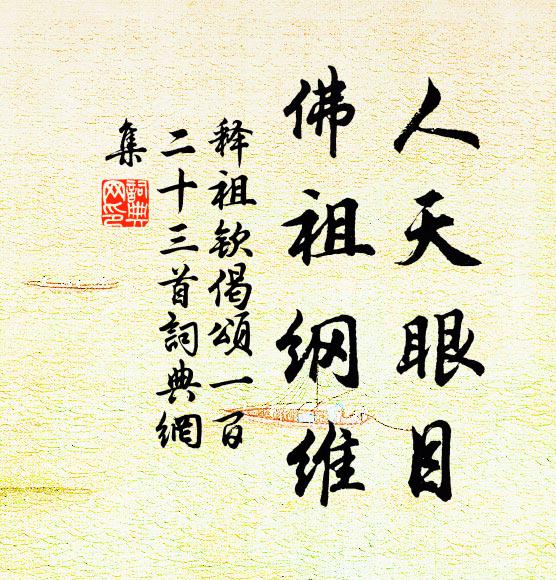 人天眼目
佛祖纲维
释祖钦偈颂一百
二十三首詞典網
集
詞典
网印